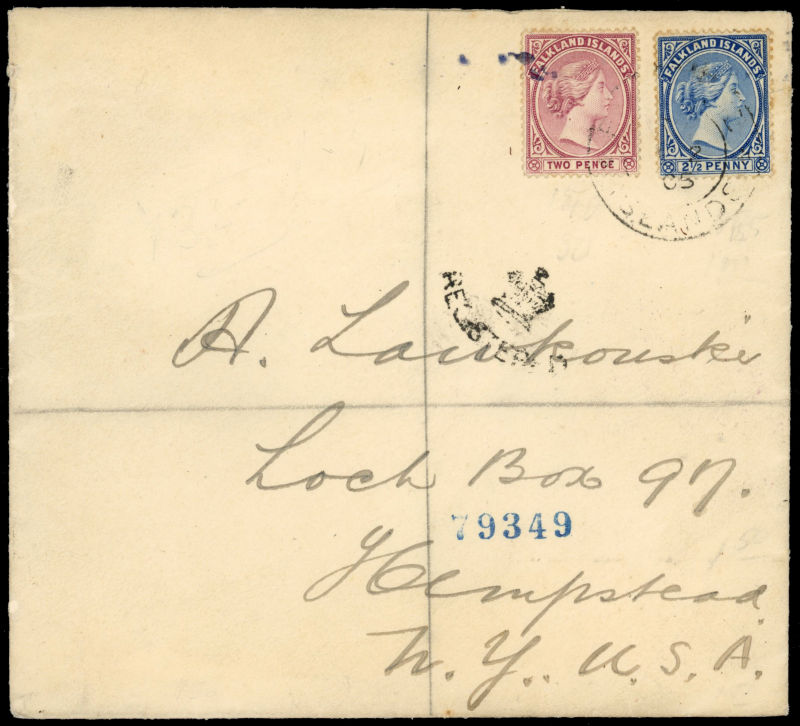 FALKLAND ISLANDS
TWO PENCE
FALKLAND ISLANDS
2½ PENNY
05
ISLANDS
REGISTERED
A. Lawkouski
Lock Box 97.
79349
Hempstead
N.Y., U.S.A.